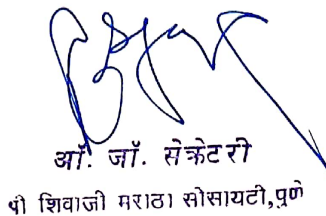 ऑ. जॉ. सेक्रेटरी
श्री शिवाजी मराठा सोसायटी, पुणे